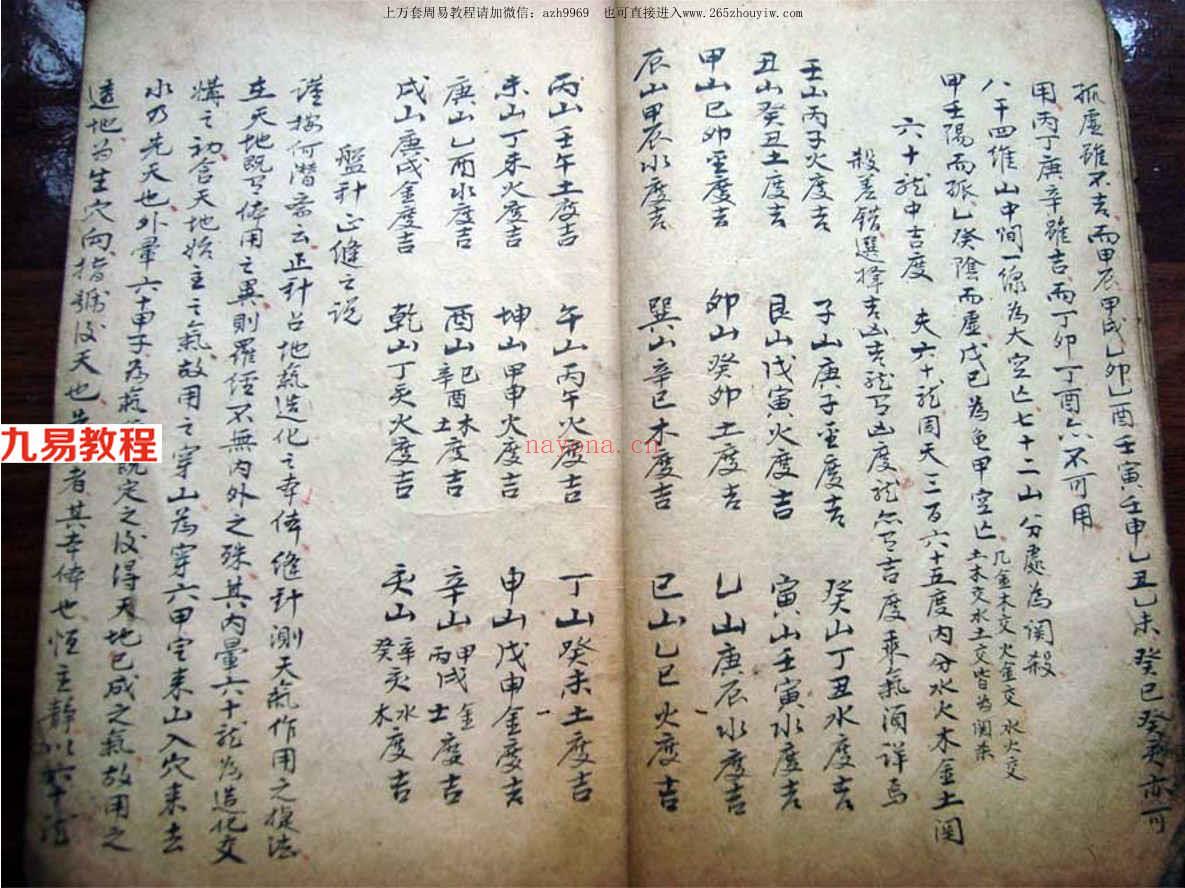 上万套周易教程请加微信：azh9969 也可直接进入www.265zhouyiw.com
孤虛雖不吉而甲辰甲戌乙卯乙酉壬寅壬申乙丑乙未癸巳癸亥亦可
用丙丁庚辛雖吉而丁卯丁酉亦不可用
八干四維山中間一線為大空亡七十二山分處為関殺
凡金木交火金交水火交
土木交水土交皆為関杀
甲壬陽而孤乙癸陰而虛戊己為龟甲空亡
六十龍中吉度 夫六十龍周天三百六十五度內分水火木金土関
殺差錯選擇吉凶吉龍有凶度凶龍亦有吉度乘氣須詳焉
壬山丙子火度吉 子山庚子金度吉 癸山丁丑水度吉
丑山癸丑土度吉 艮山戊寅火度吉 寅山壬寅水度吉
甲山己卯金度吉 卯山癸卯土度吉 乙山庚辰水度吉
辰山甲辰水度吉 巽山辛巳木度吉 巳山乙巳火度吉
丙山壬午土度吉 午山丙午火度吉 丁山癸未土度吉
未山丁未火度吉 坤山甲申火度吉 申山戊申金度吉
庚山乙酉水度吉 酉山己酉木辛土度吉 辛山甲戌金丙戌土度吉
戌山庚戌金度吉 乾山丁亥火度吉 亥山辛亥水癸木度吉
盤針正縫之說
謹按何潛齋云正針占地氣造化之本体縫針測天氣作用之
在天地既有体用之異則羅經不無內外之殊其內暈六十龍為造化交
媾之初含天地始主之氣故用之穿山為穿六甲定来山入穴来去
水乃先天也外暈六十甲子為 定之後得天地已成之氣故用之
透地為生穴向 後天也 者其本体也恒主静
九易教程
nayona.cn